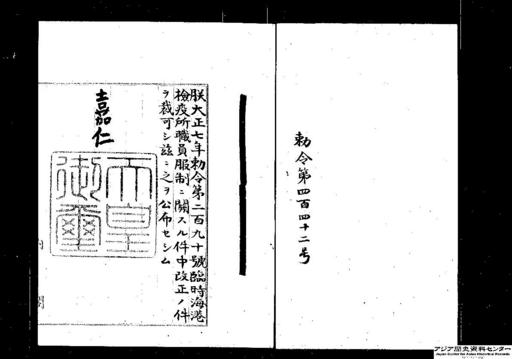 勅令第四百四十二号
朕大正七年勅令第二百九十號臨時海港
檢疫所職員服制ニ關スル件中改正ノ件
ヲ裁可シ茲ニ之ヲ公布セシム
嘉仁
天皇
御璽
内
閣
アジア歴史資料センター
Japan Center for Asian Historical Records